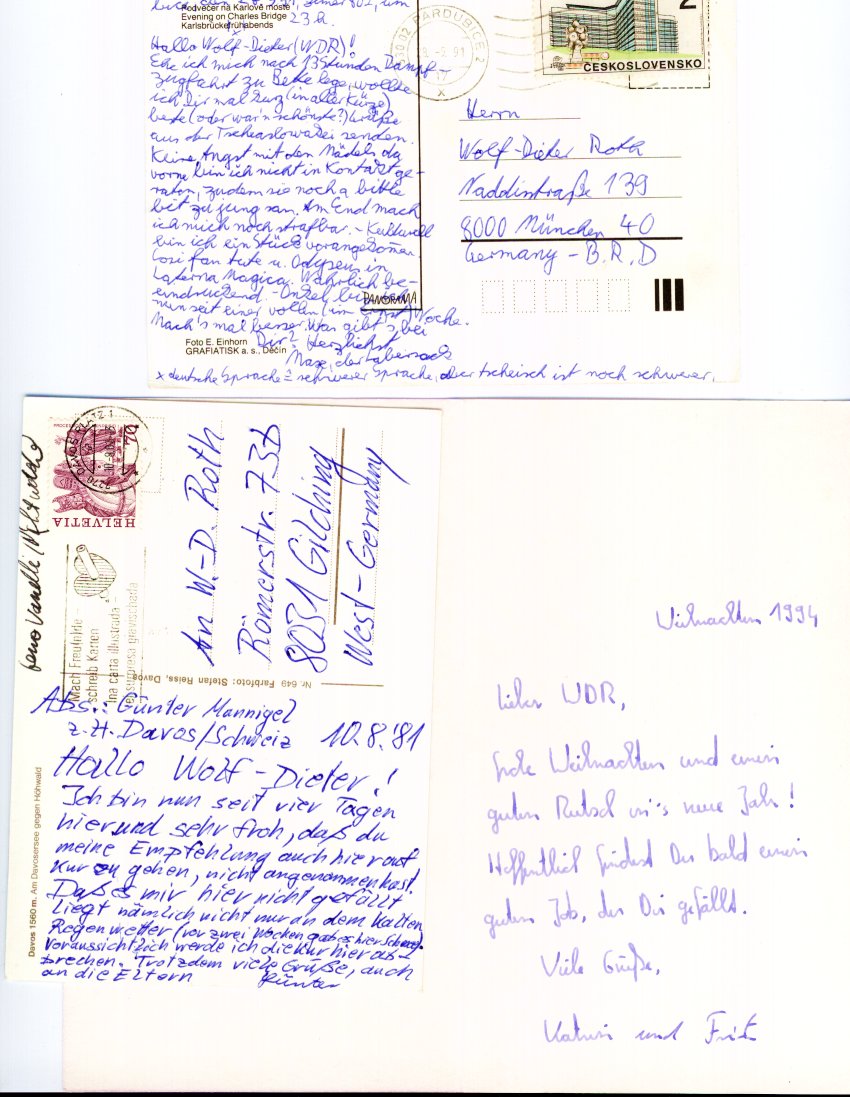 Podvečer na Karlově mostě
Evening on Charles Bridge
Karlsbrücke frühabends
23 h.
Hallo Wolf-Dieter (WDR)!
Ehe ich mich nach 13 Stunden Dampf-
zugfahrt zu Bette lege, wollte
ich Dir mal kurz (in aller Kürze)
beste (oder war'n schönste?) Grüße
aus der Tschechoslowakei senden.
Keine Angst mit den Mädels da
vorne bin ich nicht in Kontakt ge-
raten, zudem sie noch a bitle
bit zu jung san. Am End mach
ich mich noch strafbar. - Kulturell
bin ich ein Stück vorangekommen.
Cosi fan tute u. Odyseus in
Laterna Magica. Wahrlich be-
eindruckend. - Onkel bin ich
nun seit einer vollen (im Ernst) Woche.
Mach's mal besser. Was gibt's bei
Dir? Herzlichst
Max, der Labersack
x deutsche Sprache = schwerer Sprache, aber tscheisch ist noch schwerer.
PANORAMA
Foto E. Einhorn
GRAFIATISK a. s., Děčín
PARDUBICE 2
ČESKOSLOVENSKO
2
Herrn
Wolf-Dieter Roth
Naddistraße 139
8000 München 40
Germany - B.R.D
7270 DAVOS PLATZ 1
70
HELVETIA
Mach Freu(n)de -
schreib Karten
Ina carta illustrada -
ensurpresa gravischada
An W.-D. Roth
Römerstr. 73b
8031 Gilching
West-Germany
Nr. 649 Farbfoto: Stefan Reiss, Davos
Davos 1560 m. Am Davosersee gegen Hohwald
Abs.: Günter Mannigel
z.H. Davos/Schweiz 10.8.'81
Hallo Wolf-Dieter!
Ich bin nun seit vier Tagen
hier und sehr froh, daß du
meine Empfehlung auch hier auf
Kur zu gehen, nicht angenommen hast.
Daß es mir hier nicht gefällt
liegt nämlich nicht nur an dem kalten
Regenwetter (vor zwei Wochen gab es hier Schnee).
Voraussichtlich werde ich die Kur hier ab-
brechen. Trotzdem viele Grüße, auch
an die Eltern Günter
Weihnachten 1994
Lieber WDR,
frohe Weihnachten und einen
guten Rutsch in's neue Jahr!
Hoffentlich findest Du bald einen
guten Job, der Dir gefällt.
Viele Grüße,
Katrin und Fritz